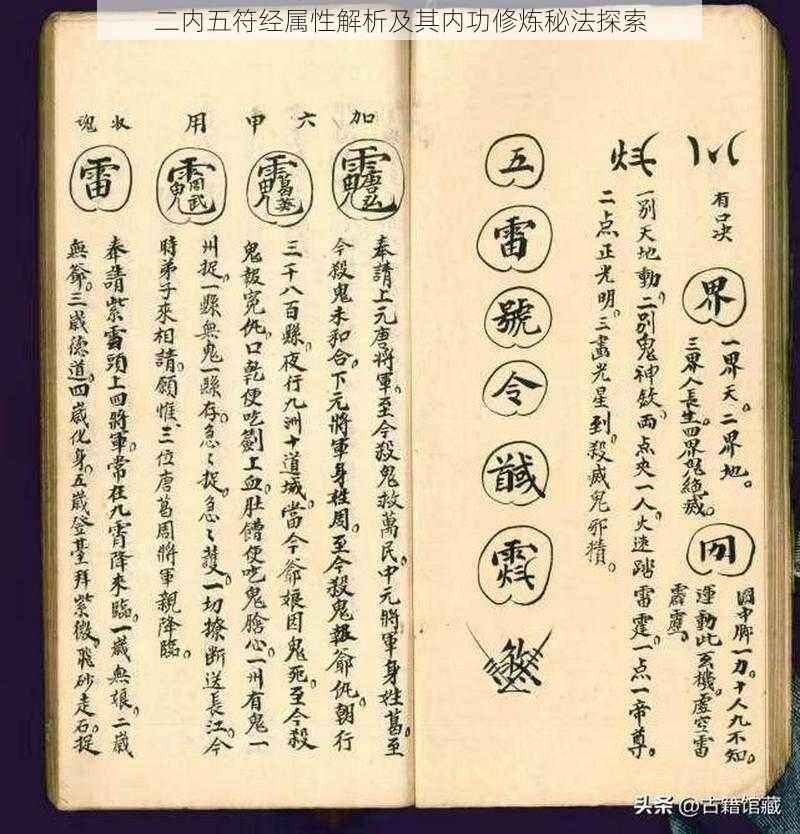 二内五符经属性解析及其内功修炼秘法探索
有口決
界
一界天。二界地。
三界人長生。四界鬼絕滅。
罡中脚一刀。十人九不知。
運動此玄機。虛空雷
霹靂。
一別天地動。二別鬼神欽。兩点夾一人。火速踏雷霆。一点一帝尊。
二点正光明。三畫光星到。殺滅鬼邪積。
五
雷
號
令
加六甲用
奉請上元唐將軍。至今殺鬼救萬民。中元將軍身姓葛。至
今殺鬼未和合。下元將軍身姓周。至今殺鬼報爺仇。朝行
三千八百縣。夜行九洲十道城。當今爺娘因鬼死。至今殺
鬼報冤仇。口乾便吃劍上血。肚饑便吃鬼膽心。一州有鬼一
州捉。一縣無鬼一縣存。急〻捉。急〻護。一切撩断送長江。今
時弟子來相請。願惟三位唐葛周將軍親降臨。
雷
奉請紫雲頭上四將軍。常在九霄降來臨。一歲無娘。二歲
無爺。三歲德道。四歲化身。五歲登臺拜紫微。飛砂走石。捉
头条 @古籍馆藏